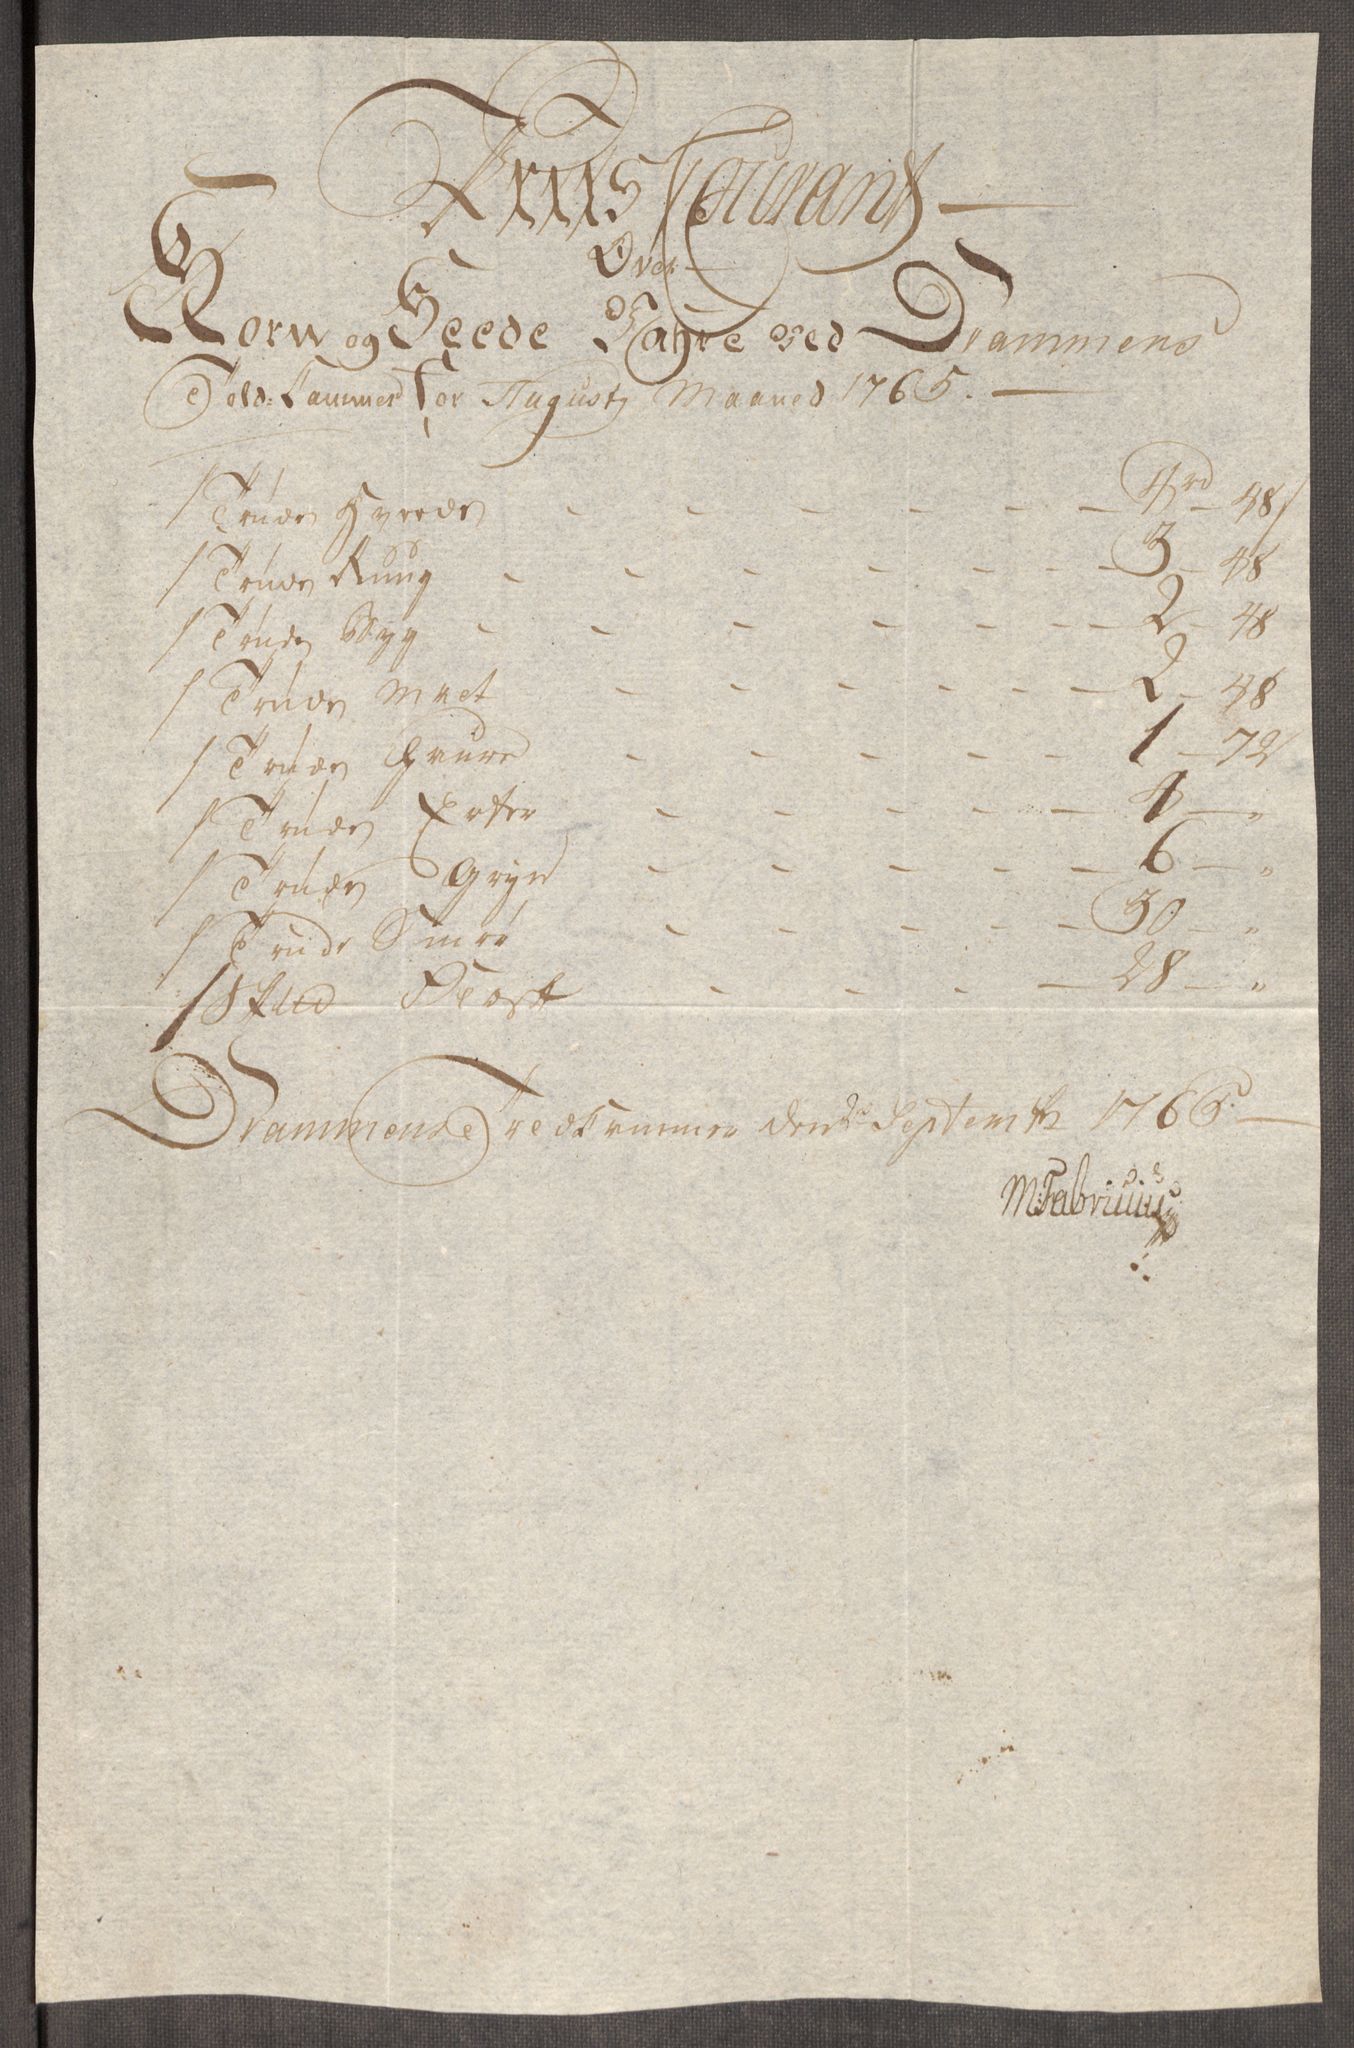 Priis Courant
Over
Korn og Feede Vahre ved Drammens
Told: Cammer for Augusti Maaned 1765.
1 Tønde Hveede - - - - - 4 rd - 48 s
1 Tønde Rug - - - - - 3 - 48
1 Tønde Byg - - - - - 2 - 48
1 Tønde Malt - - - - - 2 - 48
1 Tønde Havre - - - - - 1 - 72
1 Tønde Erter - - - - - 4 - "
1 Tønde Gryn - - - - - 6 - "
1 Tønde Smør - - - - - 30 - "
1 Skd Flesk - - - - 28 - "
Drammens Toldkammer den 2 Septembr 1765.
M: Fabritius